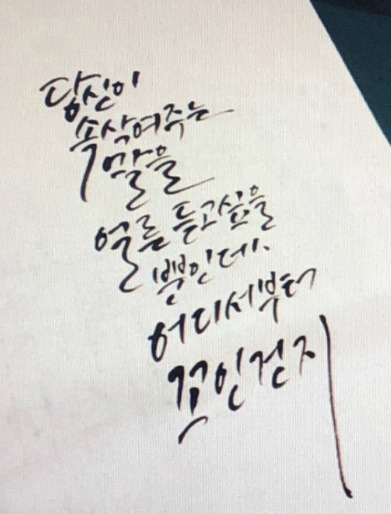 당신이
속삭여주는
말을
얼른 듣고싶을
뿐인데.
어디서부터
꼬인걷지